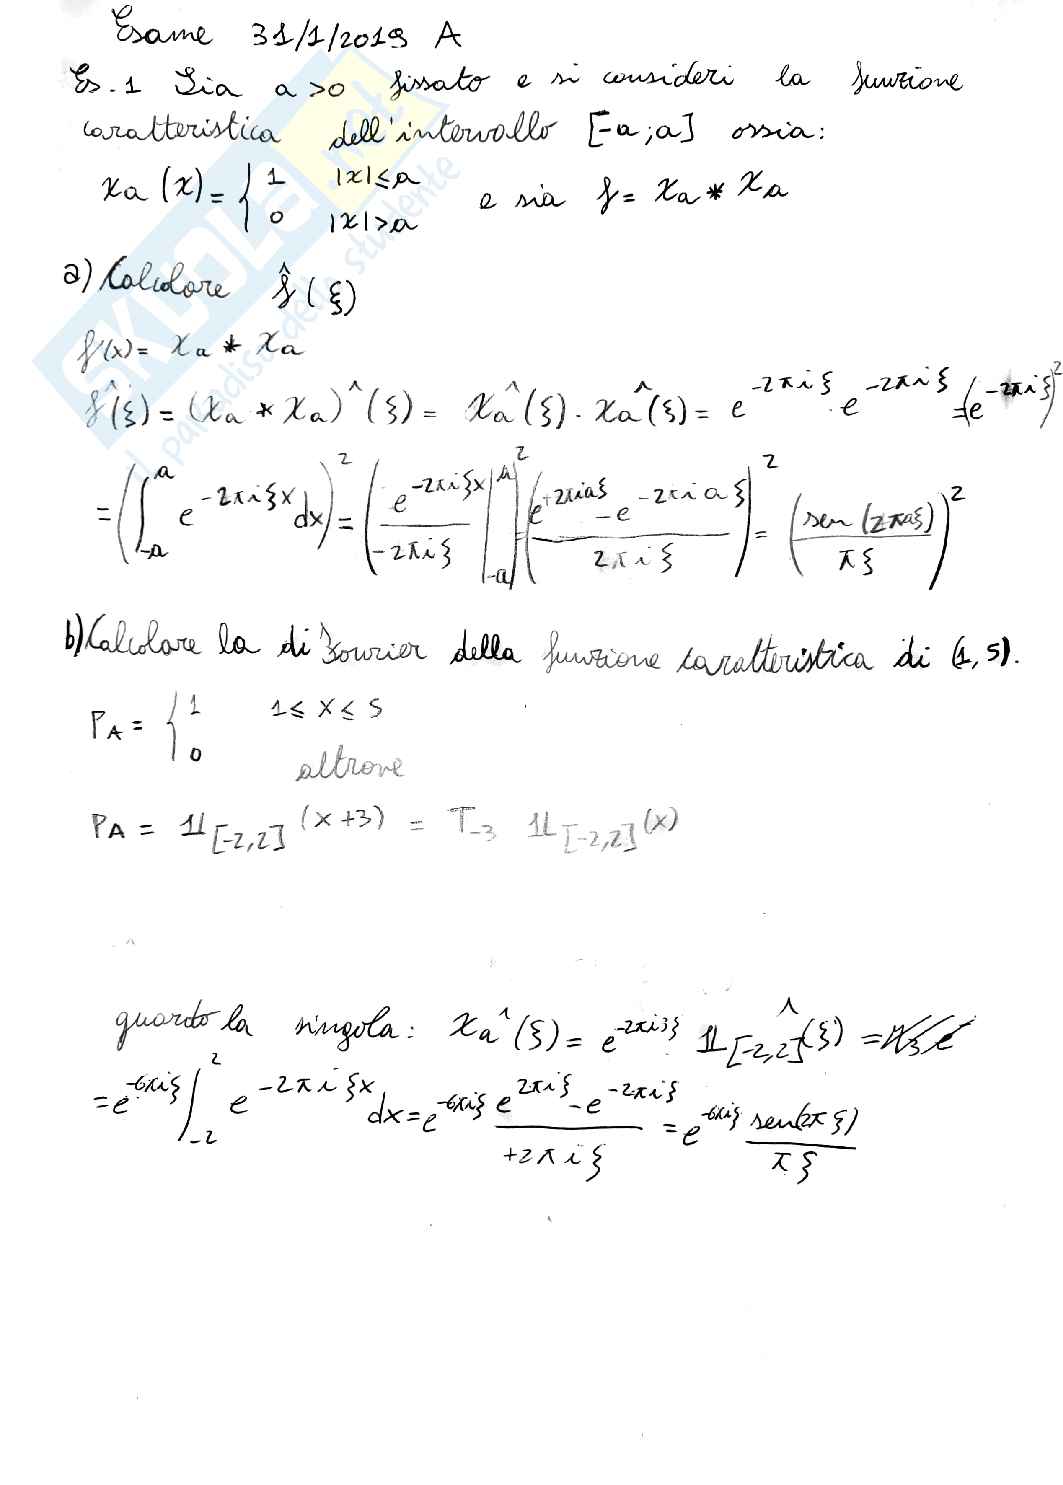 Esame 31/1/2019 A
Es. 1 Sia a >0 fissato e si consideri la funzione
caratteristica dell'intervallo [-a ; a] ossia:
χa (x) = { 1 |x| ≤ a
0 |x| > a e sia f = χa * χa
a) Calcolare f̂ (ξ)
f(x) = χa * χa
f̂(ξ) = (χa * χa)^(ξ) = χa^(ξ) · χa^(ξ) = e^{-2πiξ} · e^{-2πiξ} = (e^{-2πiξ})^2
= (∫_{-a}^{a} e^{-2πiξx} dx)^2 = (e^{-2πiξx} / -2πiξ |_{-a}^{a})^2 = (e^{+2πiaξ} - e^{-2πiaξ} / 2πiξ)^2 = (sen(2πaξ) / πξ)^2
b) Calcolare la di Fourier della funzione caratteristica di (1, 5).
PA = { 1 1 ≤ x ≤ 5
0 altrove
PA = 𝟙_{[-2,2]} (x+3) = T_{-3} 𝟙_{[-2,2]} (x)
guardo la singola: χa^(ξ) = e^{-2πi3ξ} 𝟙^_{[-2,2]}(ξ) =
= e^{-6πiξ} ∫_{-2}^{2} e^{-2πiξx} dx = e^{-6πiξ} e^{2πiξ} - e^{-2πiξ} / +2πiξ = e^{-6πiξ} sen(2πξ) / πξ
SKUOLA.net
il paradiso dello studente